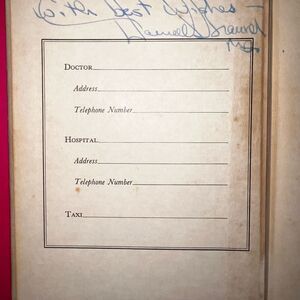 With the best wishes —
M.D.
DOCTOR
Address
Telephone Number
HOSPITAL
Address
Telephone Number
TAXI